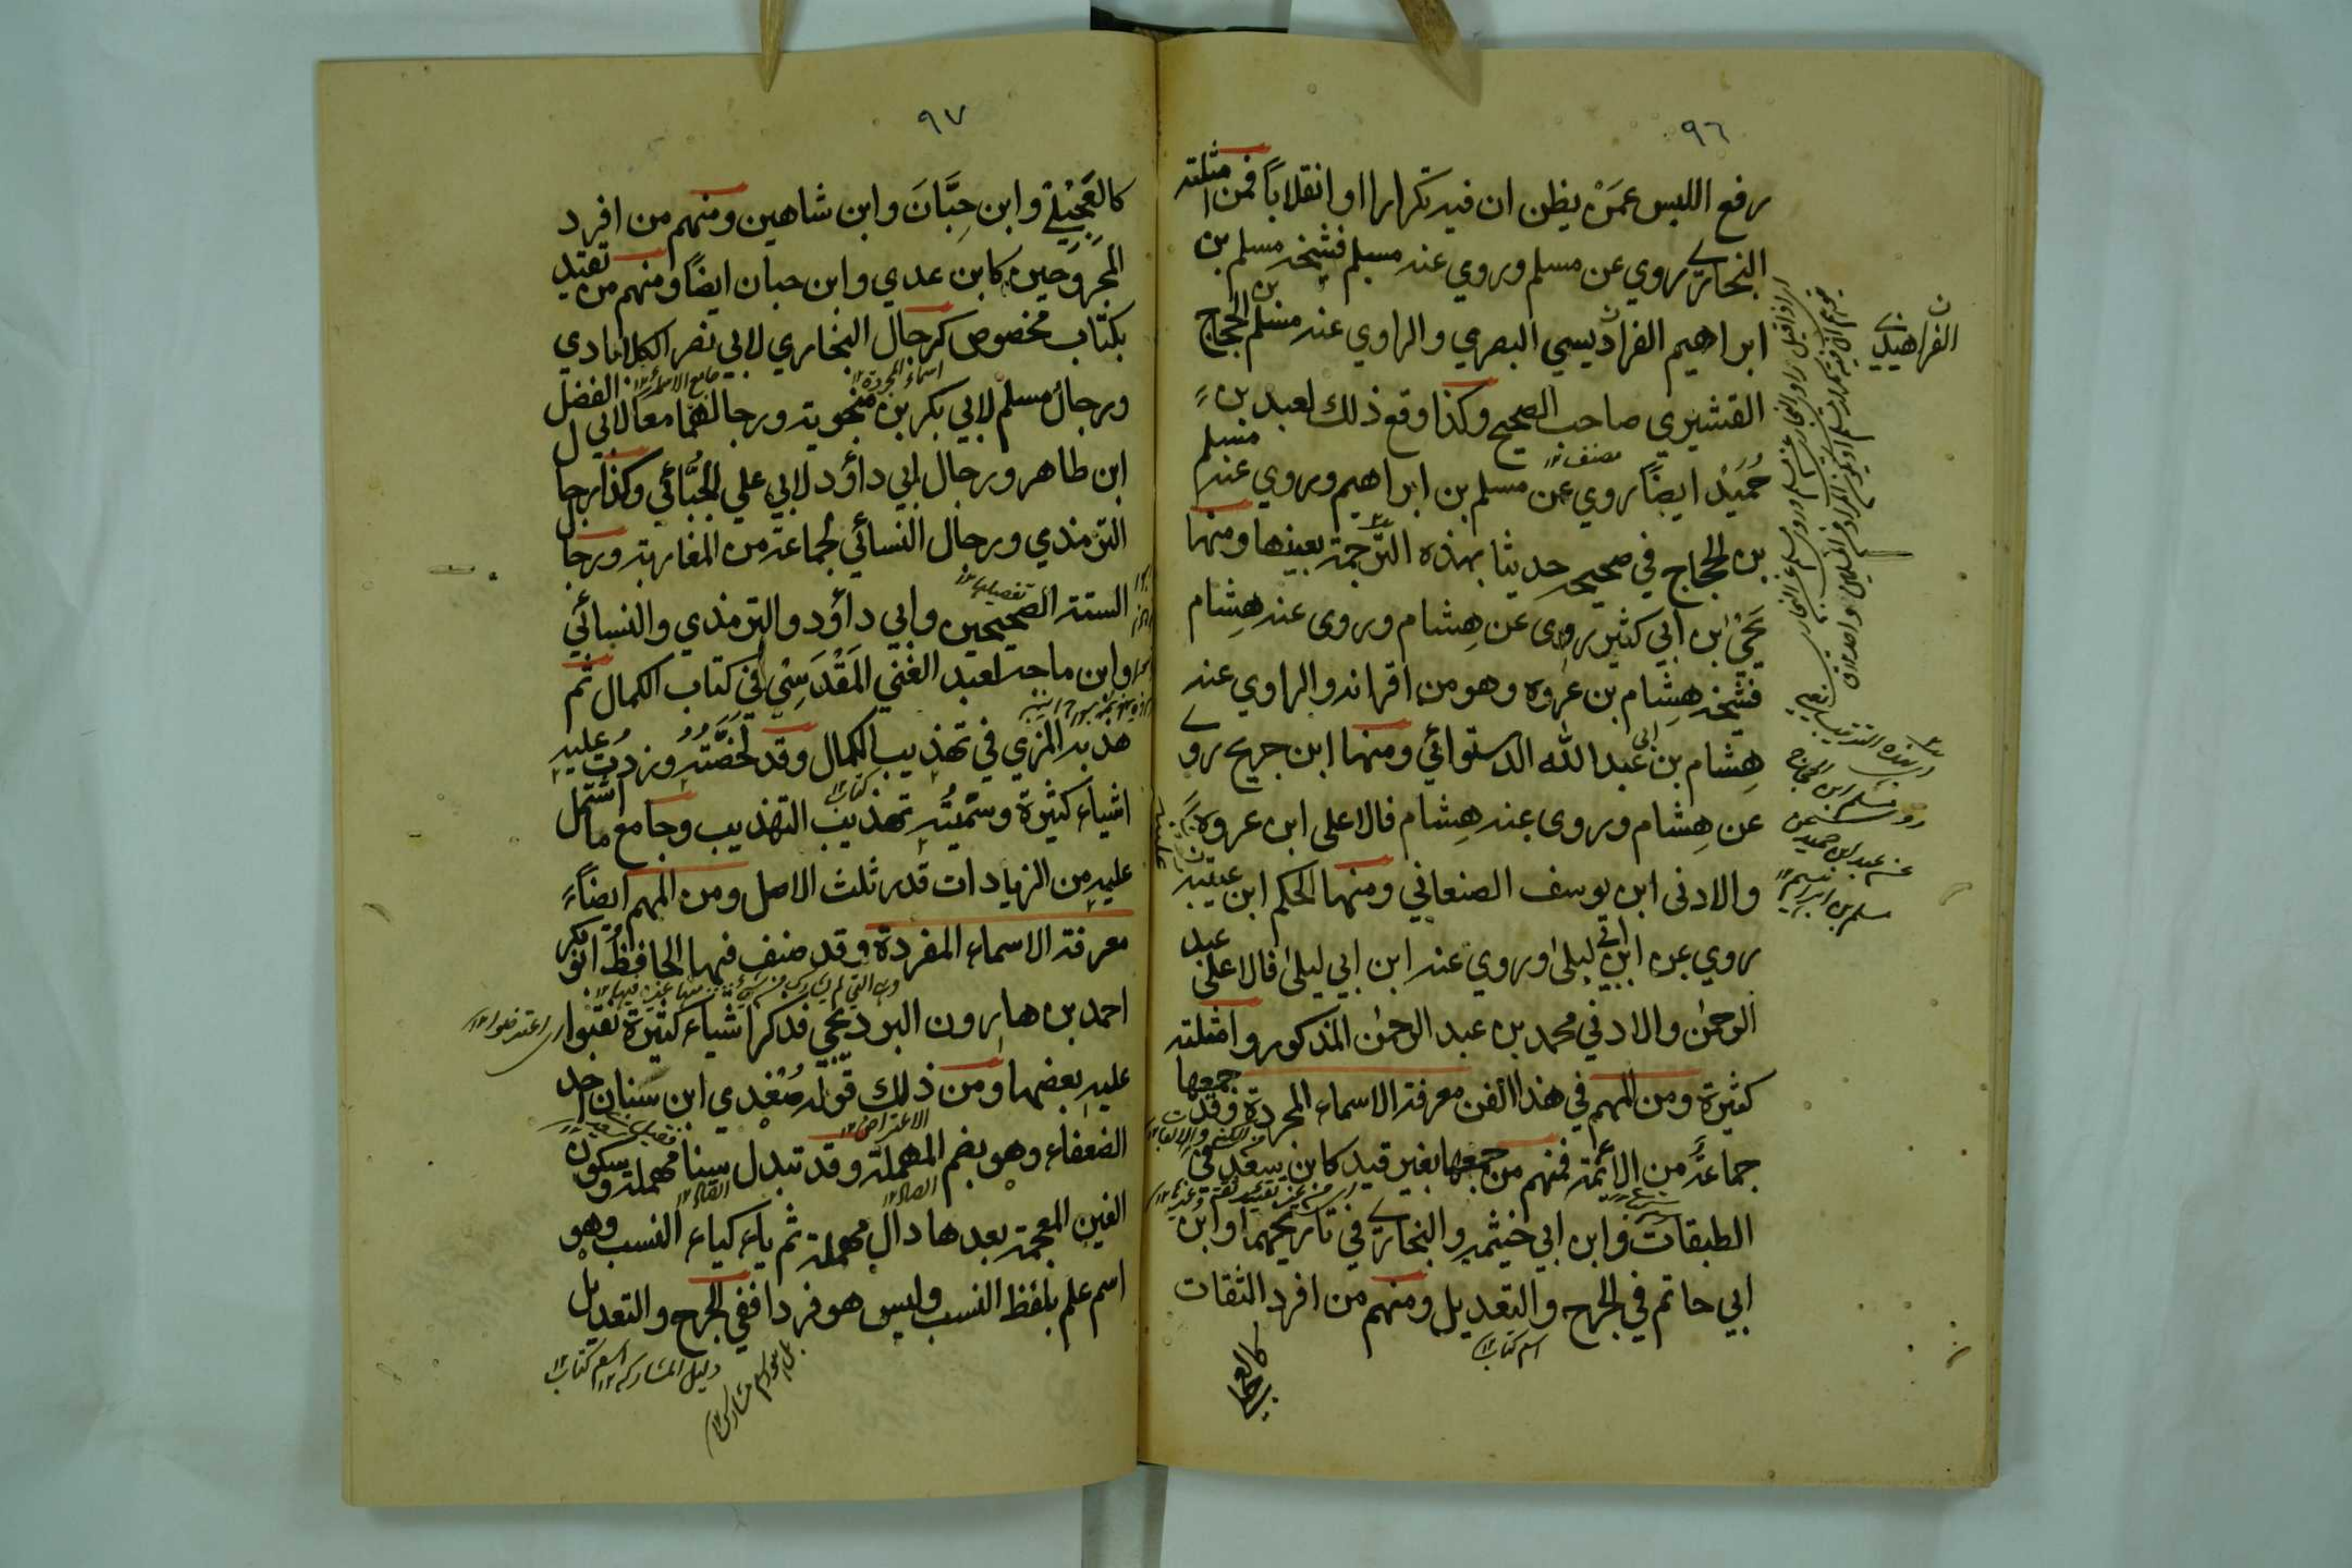 ٩٦
رفع اللبس عمَنْ يظن ان فيه تكرارا او انقلاباً فمن امثلته
البخاري روي عن مسلم وروي عنه مسلم فشيخه مسلم بن
ابراهيم الفراديسي البصري والراوي عنه مسلم بن الحجاج
القشيري صاحب الصحيح وكذا وقع ذلك لعبد بن
حُمَيْد ايضاً روي عن مسلم بن ابراهيم وروي عنه مسلم
بن الحجاج في صحيحه حديثا بهذه الترجمة بعينها ومنها
يَحْيٰ ابن ابي كثير روى عن هِشام وروى عنه هِشام
فشيخه هِشام بن عروه وهو من اقرانه والراوي عنه
هِشام بن ابي عبد الله الدستوائي ومنها ابن جريح روى
عن هِشام وروى عنه هِشام فالاعلى ابن عروه
والادنى ابن يوسف الصنعاني ومنها الحكم ابن عتيبه
روي عن ابن ابي ليلى وروي عنه ابن ابي ليلى فالاعلى عبد
الرحمٰن والادني محمد بن عبد الرحمٰن المذكور وامثلته
كثيرة ومن المهم في هذا الفن معرفة الاسماء المجردة وقد جمعها
جماعة من الائمة فمنهم من جمعها بغير قيد كابن سعد في
الطبقات وابن ابي خيثمه والبخاري في تاريخيهما وابن
ابي حاتم في الجرح والتعديل ومنهم من افرد الثقات
اسم كتاب ١٢
كالعجلي
الفراهيدي
مصنف ١٢
مسلم بن ابراهيم
٩٧
كالعَجِيْلِي وابن حِبَّانَ وابن شاهين ومنهم من افرد
المجروحين كابن عدي وابن حبان ايضاً ومنهم من تقيد
بكتاب مخصوص كرجال البخاري لابي نصر الكلابادي
ورجال مسلم لابي بكر بن منجويه ورجالهما معاً لابي الفضل
ابن طاهر ورجال ابي داؤد لابي علي الجُبَّائي وكذا رجال
الترمذي ورجال النسائي لجماعة من المغاربة ورجال
الستة الصحيحين وابي داؤد والترمذي والنسائي
وابن ماجه لعبد الغني المَقْدَسِيْ في كتاب الكمال ثم
هذبه المزي في تهذيب الكمال وقد لخَصَّتُهُ وزدتُ عليه
اشياء كثيرة وسمَّيتُه تهذيب التهذيب وجامع ما اشتمل
عليه من الزيادات قدر ثلث الاصل ومن المهم ايضاً
معرفة الاسماء المفردة وقد صنف فيها الحافظ ابو بكر
احمد بن هارون البرديجي فذكر اشياء كثيرة تعقبوا
عليه بعضها ومن ذلك قوله صُغْدي ابن سنان احد
الضعفاء وهو بضم المهملة وقد تبدل سينا مهملة وسكون
الغين المعجمة بعدها دال مهملة ثم ياء كياء النسب وهو
اسم علم بلفظ النسب وليس هو فردا ففي الجرح والتعديل
اسم كتاب ١٢
دليل المشاركه ١٢
اسماء المجردة ١٢
تفصيلها ١٢
كتاب ١٢
اى اعترضوا ١٢
الاعتراض ١٢